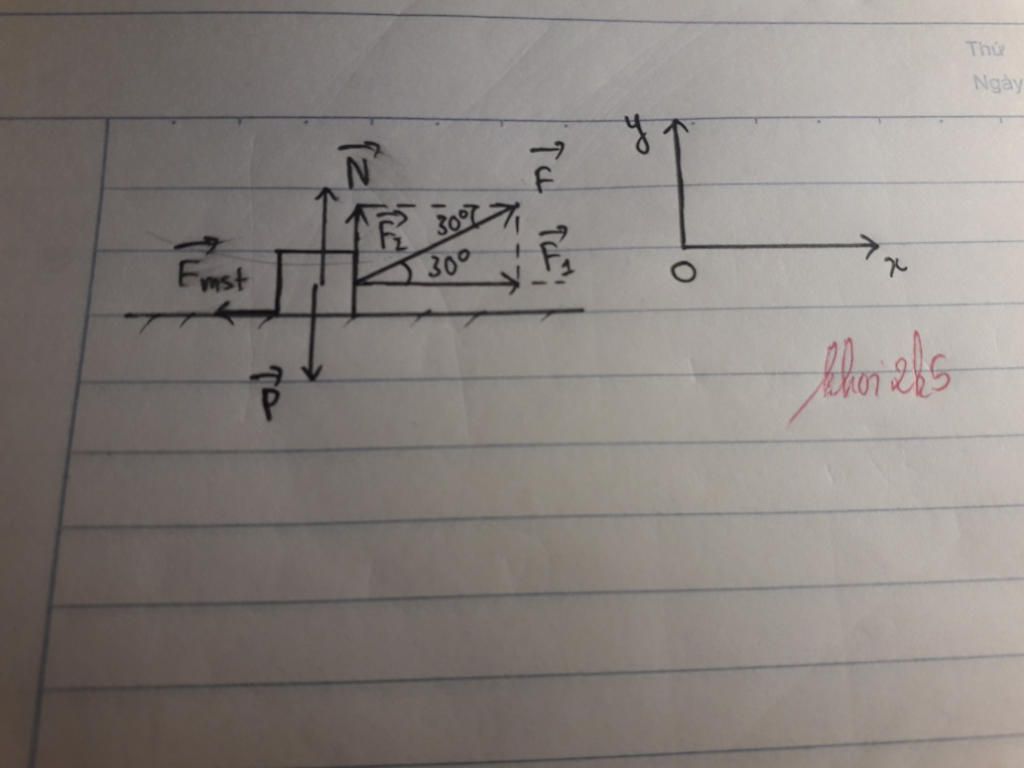 Thứ
Ngày
y
N
F
F2
30°
30°
F1
Fmst
O
x
P
khoi2k5